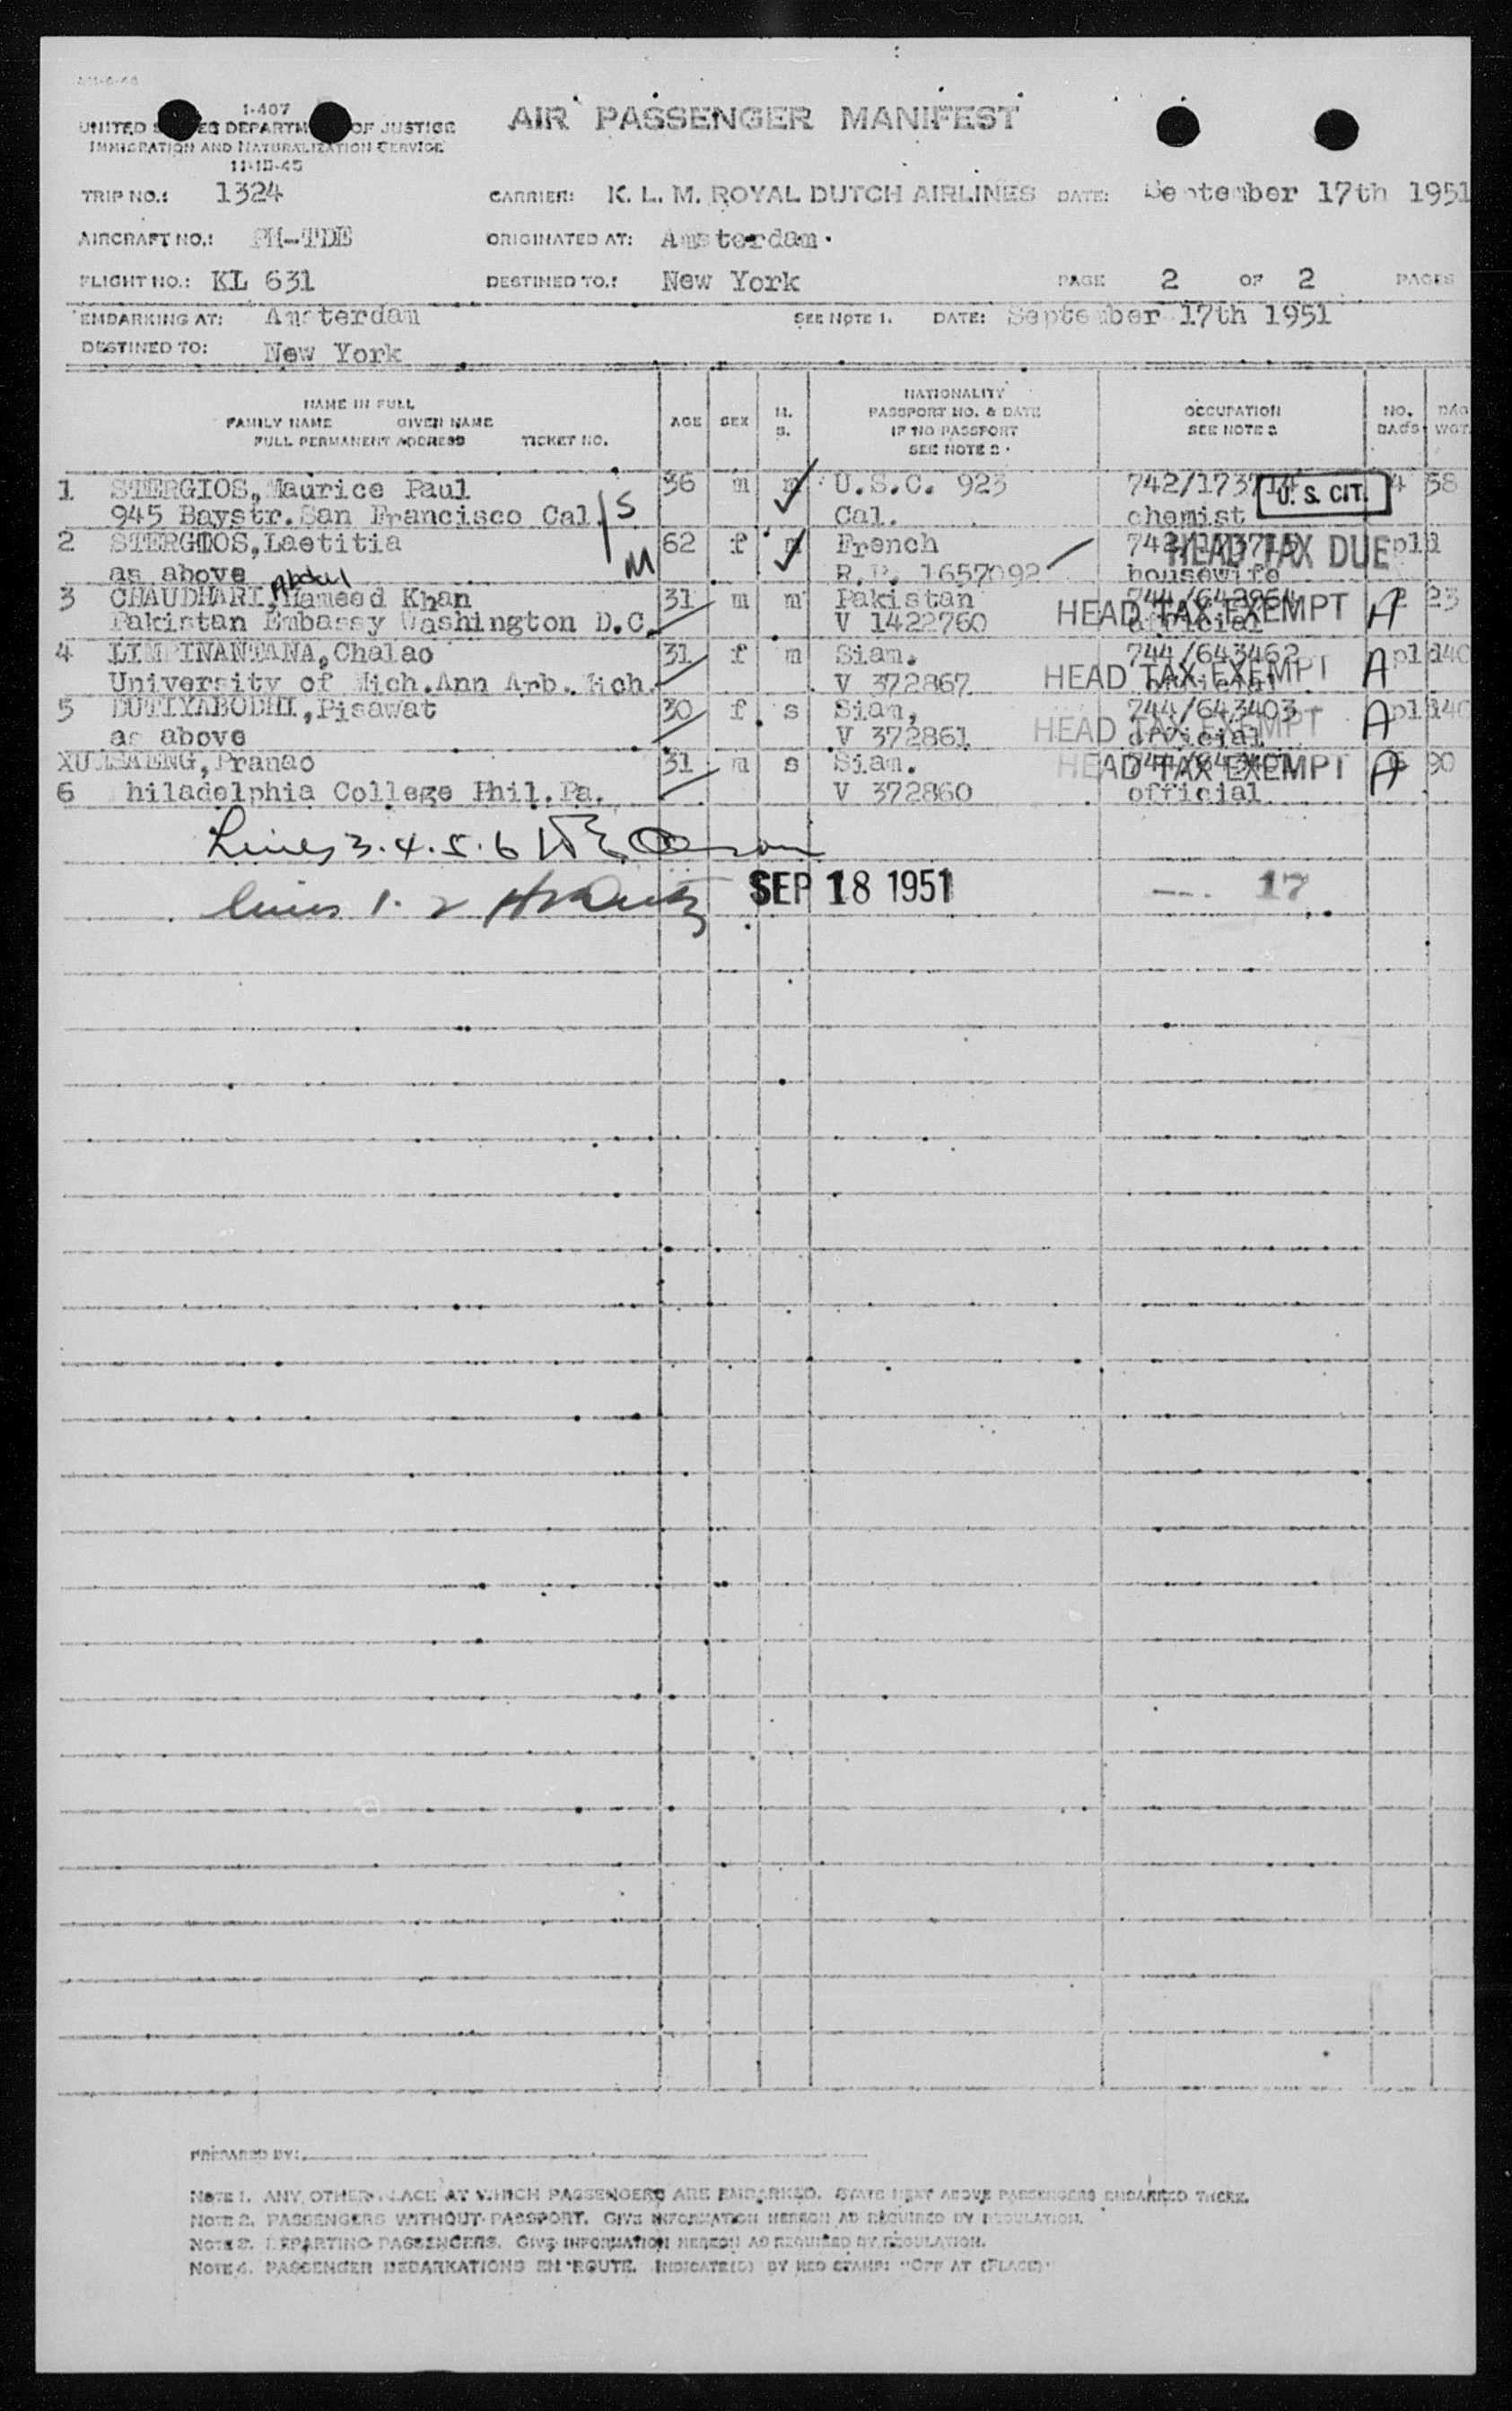 1-407
UNITED STATES DEPARTMENT OF JUSTICE
IMMIGRATION AND NATURALIZATION SERVICE
11-15-45
AIR PASSENGER MANIFEST
TRIP NO.: 1324 CARRIER: K. L. M. ROYAL DUTCH AIRLINES DATE: September 17th 1951
AIRCRAFT NO.: PH-TDE ORIGINATED AT: Amsterdam.
FLIGHT NO.: KL 631 DESTINED TO.: New York PAGE 2 OF 2 PAGES
EMBARKING AT: Amsterdam SEE NOTE 1. DATE: September 17th 1951
DESTINED TO: New York
NAME IN FULL
FAMILY NAME GIVEN NAME
FULL PERMANENT ADDRESS TICKET NO.
AGE SEX M. S.
NATIONALITY
PASSPORT NO. & DATE
IF NO PASSPORT
SEE NOTE 2.
OCCUPATION
SEE NOTE 2
NO. BAGS BAG WGT.
1 STERGIOS, Maurice Paul 36 m m U.S.C. 923 742/173714 U. S. CIT. 4 58
945 Baystr. San Francisco Cal. S Cal. chemist
2 STERGIOS, Laetitia 62 f m French HEAD TAX DUE pl 1
as above M R.P. 1657092 housewife
3 CHAUDHARI, Abdul Hameed Khan 31 m m Pakistan HEAD TAX EXEMPT A 2 23
Pakistan Embassy Washington D.C. V 1422760 official
4 LIMPINANTANA, Chalao 31 f m Siam. 744/643462 HEAD TAX EXEMPT A pl 140
University of Mich. Ann Arb. Mich. V 372867 official
5 DUTIYABODHI, Pisawat 30 f s Siam, 744/643403 HEAD TAX EXEMPT A pl 140
as above V 372861 official
Pranao 31 m s Siam. HEAD TAX EXEMPT A 90
6 hiladelphia College Phil. Pa. V 372860 official
Lines 3. 4. 5. 6
lines 1. 2 SEP 18 1951 17
PREPARED BY:
NOTE 1. ANY OTHER PLACE AT WHICH PASSENGERS ARE EMBARKED. STATE NEXT ABOVE PASSENGERS EMBARKED THERE.
NOTE 2. PASSENGERS WITHOUT PASSPORT. GIVE INFORMATION HEREON AS REQUIRED BY REGULATION.
NOTE 3. DEPARTING PASSENGERS. GIVE INFORMATION HEREON AS REQUIRED BY REGULATION.
NOTE 4. PASSENGER DEBARKATIONS EN ROUTE. INDICATE(D) BY RED STAMP: "OFF AT (PLACE)"